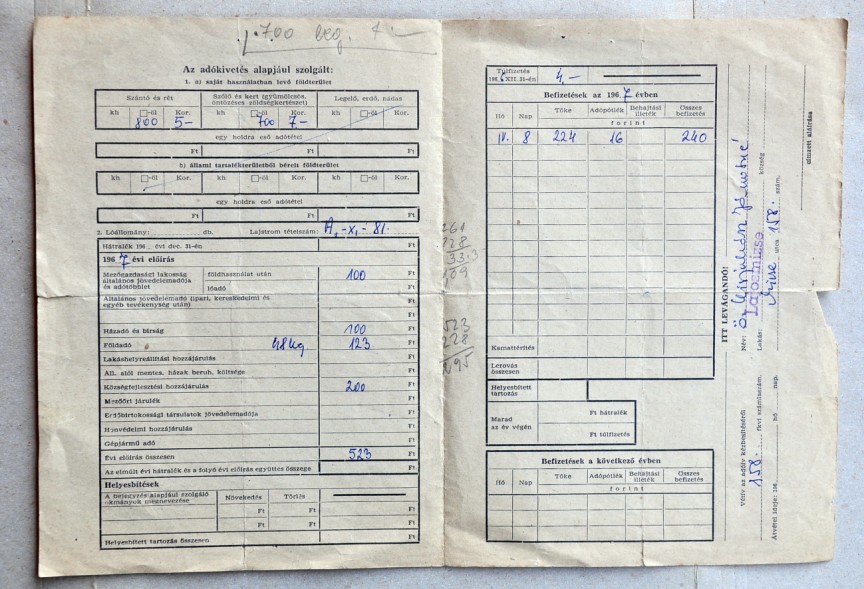 1.700 beg. 7.—
Az adókivetés alapjául szolgált:
1. a) saját használatban levő földterület
Szántó és rét
Szőlő és kert (gyümölcsös, öntözéses zöldségkertészet)
Legelő, erdő, nádas
kh □-öl Kor. kh □-öl Kor. kh □-öl Kor.
800 5- 700 7.-
egy holdra eső adótétel
Ft Ft Ft
b) állami tartalékterületből bérelt földterület
kh □-öl Kor. kh □-öl Kor. kh □-öl Kor.
egy holdra eső adótétel
Ft Ft Ft
2. Lóállomány: db. Lajstrom tételszám: A,-x,-81.
Hátralék 196 évi dec. 31-én Ft
1967 évi előírás
Mezőgazdasági lakosság általános jövedelemadója és adótöbblet
földhasználat után 100 Ft
lóadó Ft
Általános jövedelemadó (ipari, kereskedelmi és egyéb tevékenység után) Ft
Ft
Házadó és bírság 100 Ft
Földadó 48kg 123 Ft
Lakáshelyreállítási hozzájárulás Ft
Áll. alól mentes. házak beruh. költsége Ft
Községfejlesztési hozzájárulás 200 Ft
Mezőőri járulék Ft
Erdőbirtokossági társulatok jövedelemadója Ft
Honvédelmi hozzájárulás Ft
Gépjármű adó Ft
Évi előírás összesen 523 Ft
Az elmúlt évi hátralék és a folyó évi előírás együttes összege Ft
Helyesbítések
A bejegyzés alapjául szolgáló okmányok megnevezése
Növekedés Törlés
Ft Ft Ft
Ft Ft Ft
Helyesbített tartozás összesen Ft
228
523
228
295
Túlfizetés
1966 XII. 31-én 4,-
Befizetések az 1967 évben
Hó Nap Tőke Adópótlék Behajtási illeték Összes befizetés
forint
IV. 8 224 16 240
Kamattérítés
Lerovás összesen
Helyesbített tartozás
Marad az év végén
Ft hátralék
Ft túlfizetés
Befizetések a következő évben
Hó Nap Tőke Adópótlék Behajtási illeték Összes befizetés
forint
ITT LEVÁGANDÓ!
Vétív az adóív kézbesítéséről
158. fkvi számlaszám.
Átvétel ideje: 196 hó nap.
Név: Öz
Lakás: Lajosmizse község
Mizse utca 158. szám.
címzett aláírása